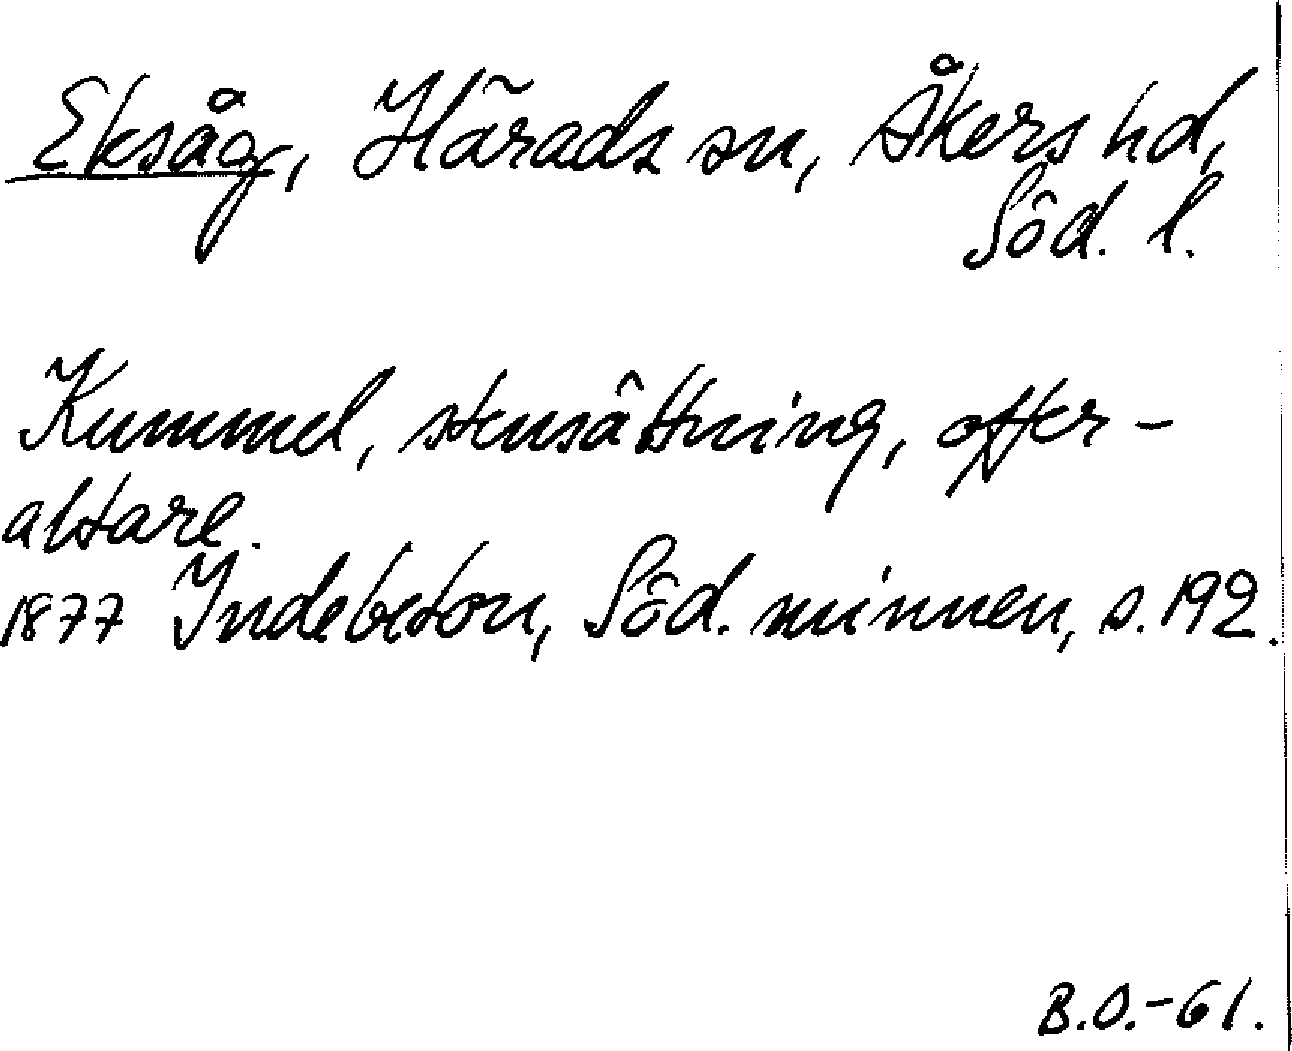 Eksåg, Härads sn, Åkers hd,
Söd. l.
Kummel, stensättning, offer-
altare.
1877 Indebetou, Söd. minnen, s. 192.
B.O.-61.